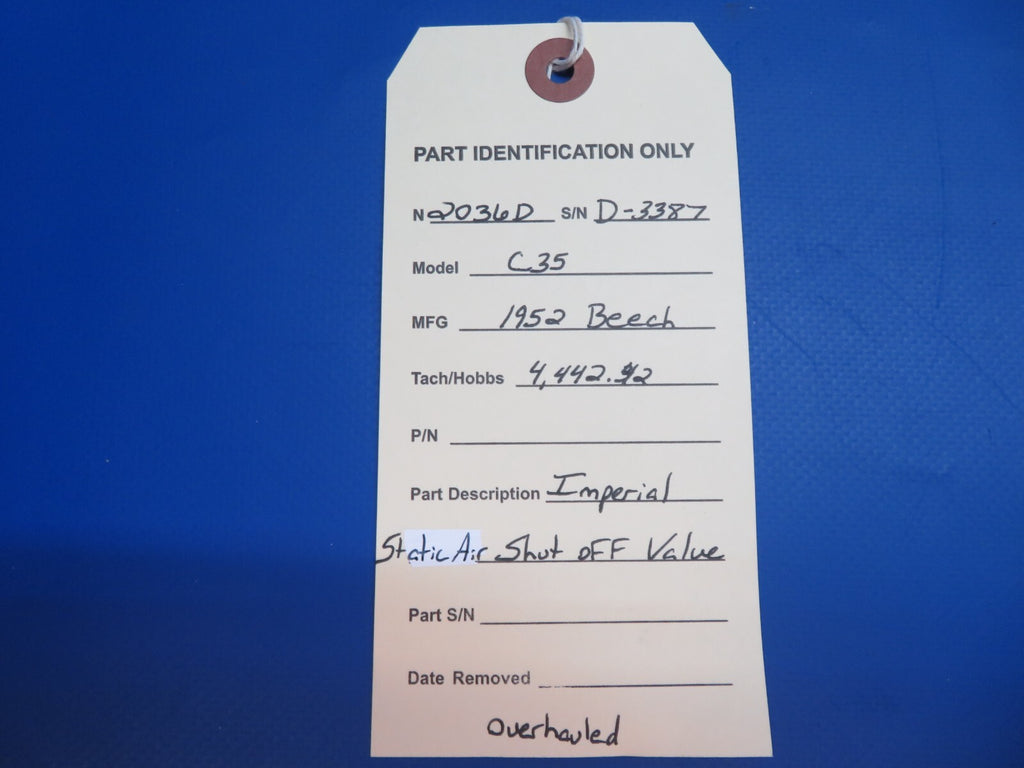 PART IDENTIFICATION ONLY
N 2036D S/N D-3387
Model C35
MFG 1952 Beech
Tach/Hobbs 4,442.92
P/N
Part Description Imperial
Static Air Shut OFF Value
Part S/N
Date Removed
Overhauled